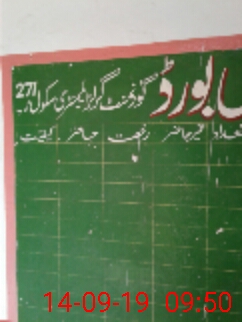 بورڈ گورنمنٹ گرلز ایلیمنٹری سکول 271
تعداد غیر حاضر رخصت حاضر کیفیت
14-09-19 09:50